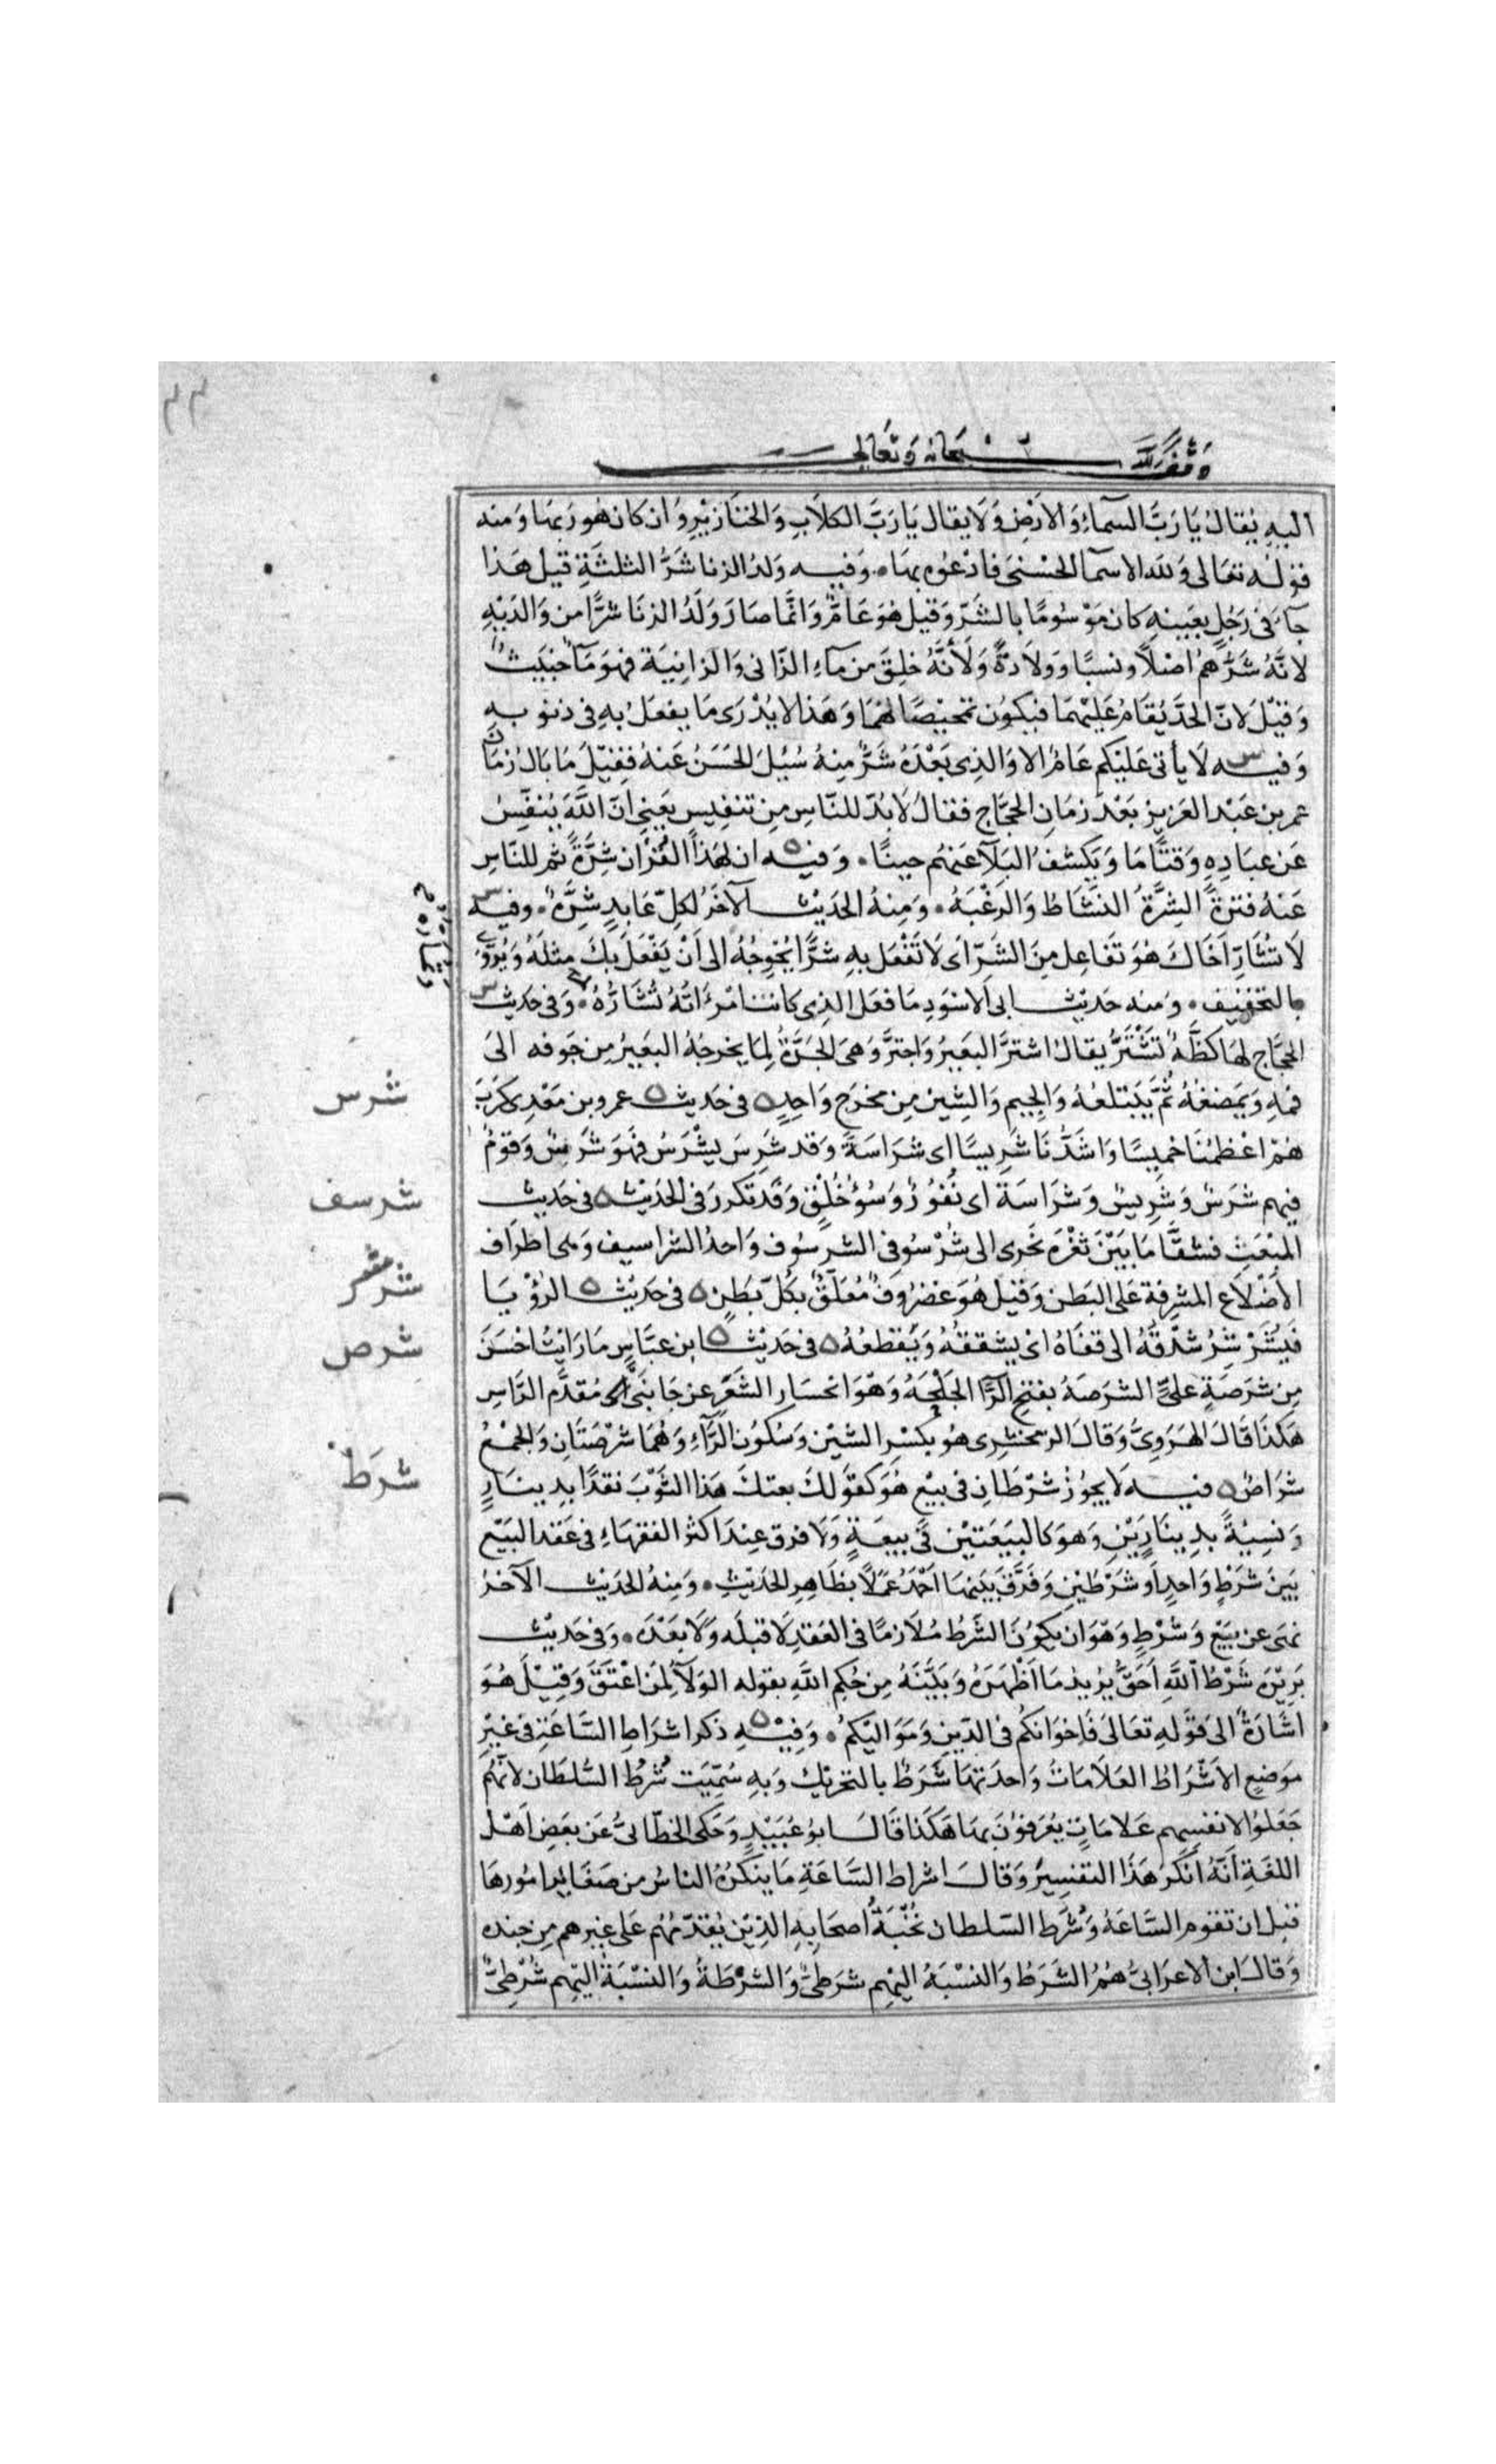 وقف لله سبحانه وتعالى
اليه يقال يا رب السماء والارض ولا يقال يا رب الكلاب والخنازير وان كان هو ربها ومنه
قوله تعالى ولله الاسما الحسنى فادعوه بها • وفيه ولد الزنا شر الثلثة قيل هذا
جآء في رجل بعينه كان موسوما بالشر وقيل هو عام وانما صار ولد الزنا شرا من والديه
لانه شرهم اصلا ونسبا وولادة ولانه خلق من ماء الزاني والزانية فهو مآ خبيث
وقيل لان الحد يقام عليهما فيكون تمحيصا لهما وهذا لا يدرى ما يفعل به في ذنوبه
وفيه لا يأتي عليكم عام الا والذي بعده شر منه سئل الحسن عنه فقيل ما بال زمان
عمر بن عبد العزيز بعد زمان الحجاج فقال لا بد للناس من تنفيس يعني ان الله ينفس
عن عباده وقتا ما ويكشف البلآ عنهم حينا • وفيه ان لهذا القرآن شرة ثم للناس
عنه فترة الشرة النشاط والرغبة • ومنه الحديث الآخر لكل عابد شرة • وفيه
لا تشار اخاك هو تفاعل من الشر اى لا تفعل به شرا يحوجه الى أن يفعل بك مثله ويروى
بالتخفيف • ومنه حديث ابى الاسود ما فعل الذي كانت امرأته تشاره • وفي حديث
الحجاج لها كظة تشتر يقال اشتر البعير واجتر وهي الجرة لما يخرجه البعير من جوفه الى
فمه ويمضغه ثم يبتلعه والجيم والشين من مخرج واحد ه في حديث عمرو بن معدى كرب
شرس
هم اعظمنا خميسا واشدنا شريسا اى شراسة وقد شرس يشرس فهو شرس وقوم
فيهم شرس وشريس وشراسة اى نفور وسوء خلق وقد تكرر في الحديث ه في حديث
شرسف
المبعث فشقا ما بين ثغرة نحرى الى شرسوفي الشرسوف واحد الشراسيف وهي اطراف
الأضلاع المشرفة على البطن وقيل هو غضروف معلق بكل بطن ه في حديث الرؤيا
شرشر
فيشرشر شدقه الى قفاه اى يشققه ويقطعه ه في حديث ابن عباس ما رايت احسن
شرص
من شرصة علي الشرصة بفتح الرآ الجلحة وهو انحسار الشعر عن جانبي مقدم الراس
هكذا قال الهروي وقال الزمخشرى هو بكسر الشين وسكون الرآء وهما شرصتان والجمع
شراص ه فيه لا يجوز شرطان في بيع هو كقولك بعتك هذا الثوب نقدا بدينار
شرط
ونسية بدينارين وهو كالبيعتين في بيعة ولا فرق عند اكثر الفقهاء في عقد البيع
بين شرط واحد أو شرطين وفرق بينهما احمد عملا بظاهر الحديث • ومنه الحديث الآخر
نهى عن بيع وشرط وهو ان يكون الشرط ملازما في العقد لا قبله ولا بعده • وفي حديث
بريرة شرط الله أحق يريد ما أظهره وبينه من حكم الله بقوله الولآ لمن اعتق وقيل هو
اشارة الى قوله تعالى فاخوانكم في الدين ومواليكم • وفيه ذكر اشراط الساعة في غير
موضع الاشراط العلامات واحدتها شرط بالتحريك وبه سميت شرط السلطان لانهم
جعلوا لانفسهم علامات يعرفون بها هكذا قال ابو عبيد وحكى الخطابي عن بعض اهل
اللغة أنه أنكر هذا التفسير وقال اشراط الساعة ما ينكره الناس من صغائر امورها
قبل ان تقوم الساعة وشرط السلطان نخبة اصحابه الذين يقدمهم على غيرهم من جنده
وقال ابن الاعرابي هم الشرط والنسبة اليهم شرطي والشرطة والنسبة اليهم شرطي